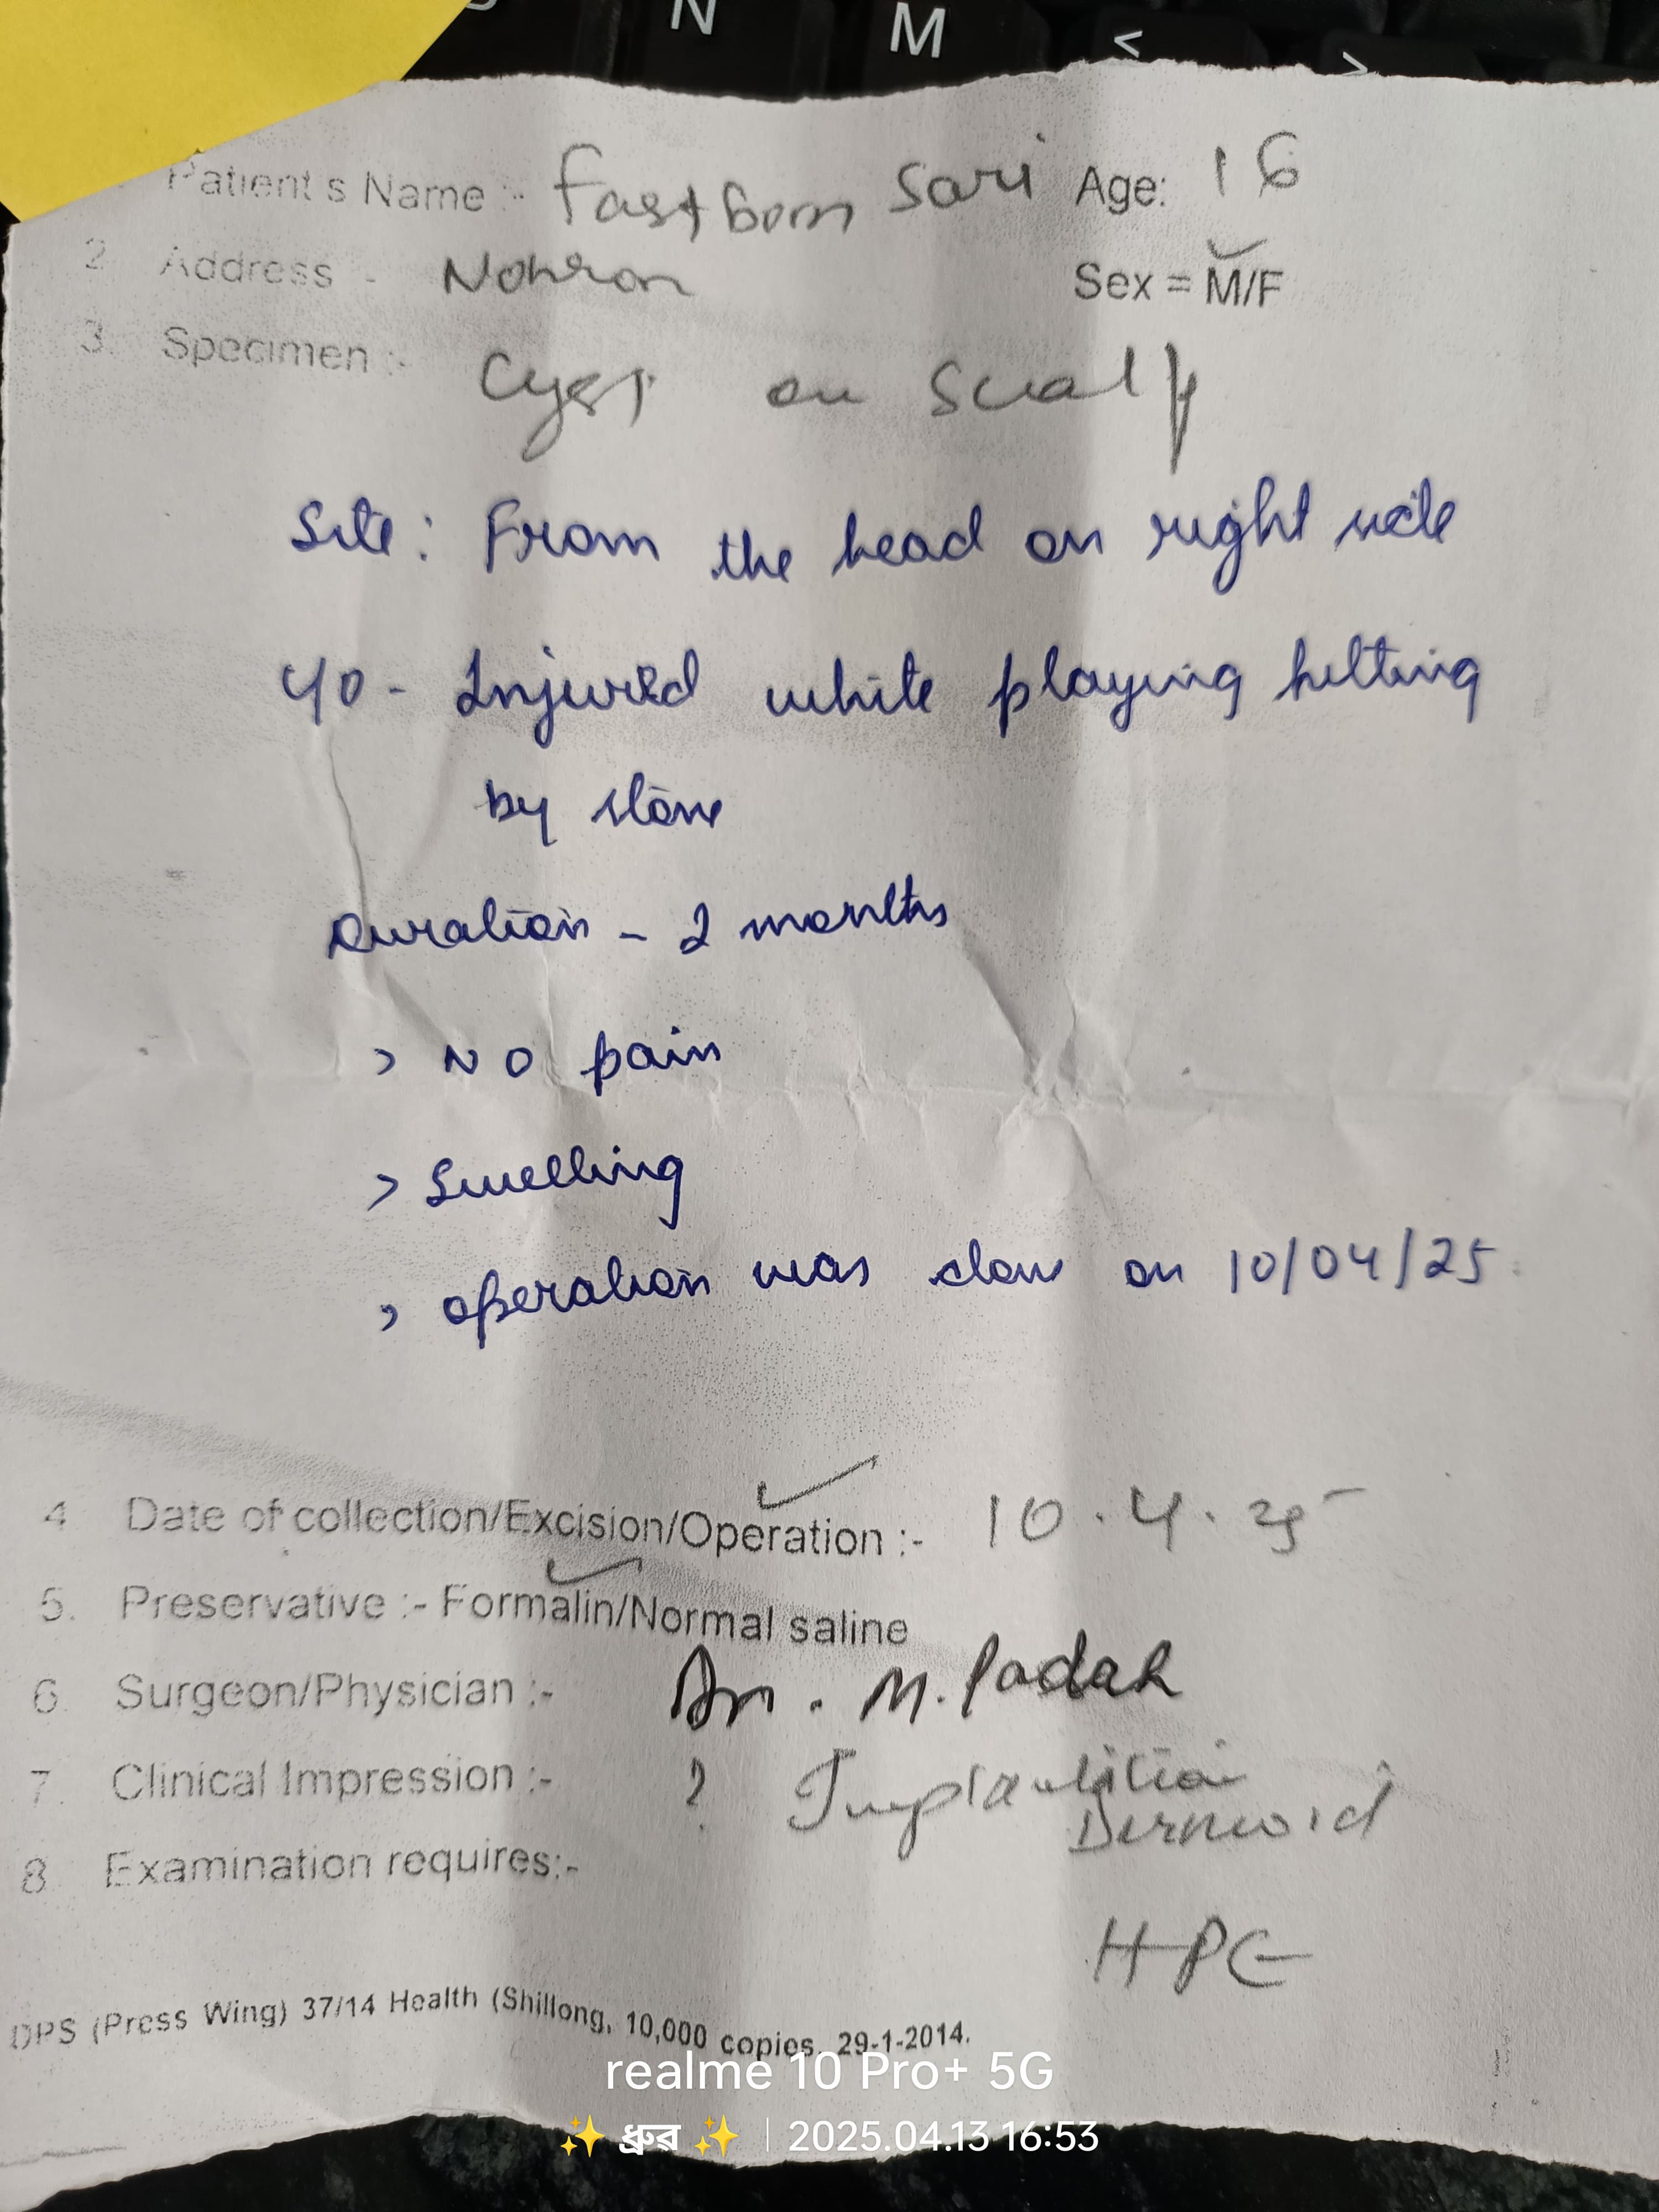 N M < >
Patient's Name :- Fastborn Sari Age: 16
2. Address - Nohron Sex = M/F
3. Specimen :- Cyst on Scalp
Site: From the head on right side
Injured while playing hitting
by stone
Duration - 2 months
> NO pain
> Swelling
> operation was done on 10/04/25.
4 Date of collection/Excision/Operation :- 10.4.25
5. Preservative :- Formalin/Normal saline
6. Surgeon/Physician :- Dr. M. Padah
7. Clinical Impression :- ? Implantation
Dermoid
8. Examination requires:-
HPE
DPS (Press Wing) 37/14 Health (Shillong, 10,000 copies, 29-1-2014.
realme 10 Pro+ 5G
✨ ধ্ৰুৱ ✨ | 2025.04.13 16:53